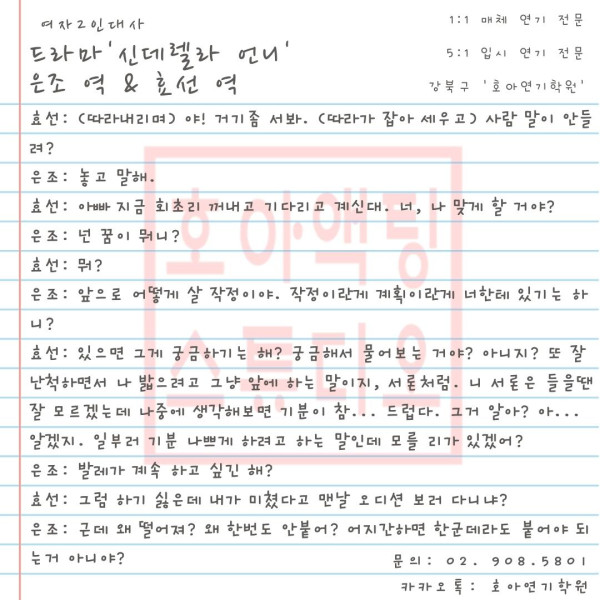 여자2인대사
1:1 매체 연기 전문
드라마 '신데렐라 언니'
5:1 입시 연기 전문
은조 역 & 효선 역
강북구 '호아연기학원'
효선: (따라내리며) 야! 거기좀 서봐. (따라가 잡아 세우고) 사람 말이 안들
려?
은조: 놓고 말해.
효선: 아빠 지금 회초리 꺼내고 기다리고 계신대. 너, 나 맞게 할 거야?
은조: 넌 꿈이 뭐니?
효선: 뭐?
은조: 앞으로 어떻게 살 작정이야. 작정이란게 계획이란게 너한테 있기는 하
니?
효선: 있으면 그게 궁금하기는 해? 궁금해서 물어보는 거야? 아니지? 또 잘
난척하면서 나 밟으려고 그냥 앞에 하는 말이지, 서론처럼. 니 서론은 들을땐
잘 모르겠는데 나중에 생각해보면 기분이 참... 드럽다. 그거 알아? 아...
알겠지. 일부러 기분 나쁘게 하려고 하는 말인데 모를 리가 있겠어?
은조: 발레가 계속 하고 싶긴 해?
효선: 그럼 하기 싫은데 내가 미쳤다고 맨날 오디션 보러 다니냐?
은조: 근데 왜 떨어져? 왜 한번도 안붙어? 어지간하면 한군데라도 붙어야 되
는거 아니야?
문의: 02. 908.5801
카카오톡: 호아연기학원
호아액팅
스튜디오